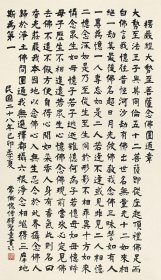 楞嚴經大勢至菩薩念佛圓通章
大勢至法王子與其同倫五十二菩薩即從座起頂禮佛足
而白佛言我憶往昔恒河沙劫有佛出世名無量光十二如來
相繼一劫其最後佛名超日月光彼佛教我念佛三昧譬如有
人一專為憶一人專忘如是二人若逢不逢或見非見二人相憶
二憶念深如是乃至從生至生同於形影不相乖異十方如來
憐念眾生如母憶子若子逃逝雖憶何為子若憶母如母憶時
母子歷生不相違遠若眾生心憶佛念佛現前當來必定見佛去
佛不遠不假方便自得心開如染香人身有香氣此則名曰香
光莊嚴我本因地以念佛心入無生忍今於此界攝念佛人
歸於淨土佛問圓通我無選擇都攝六根淨念相繼得三摩地
斯為第一
民國二十八年己卯季夏